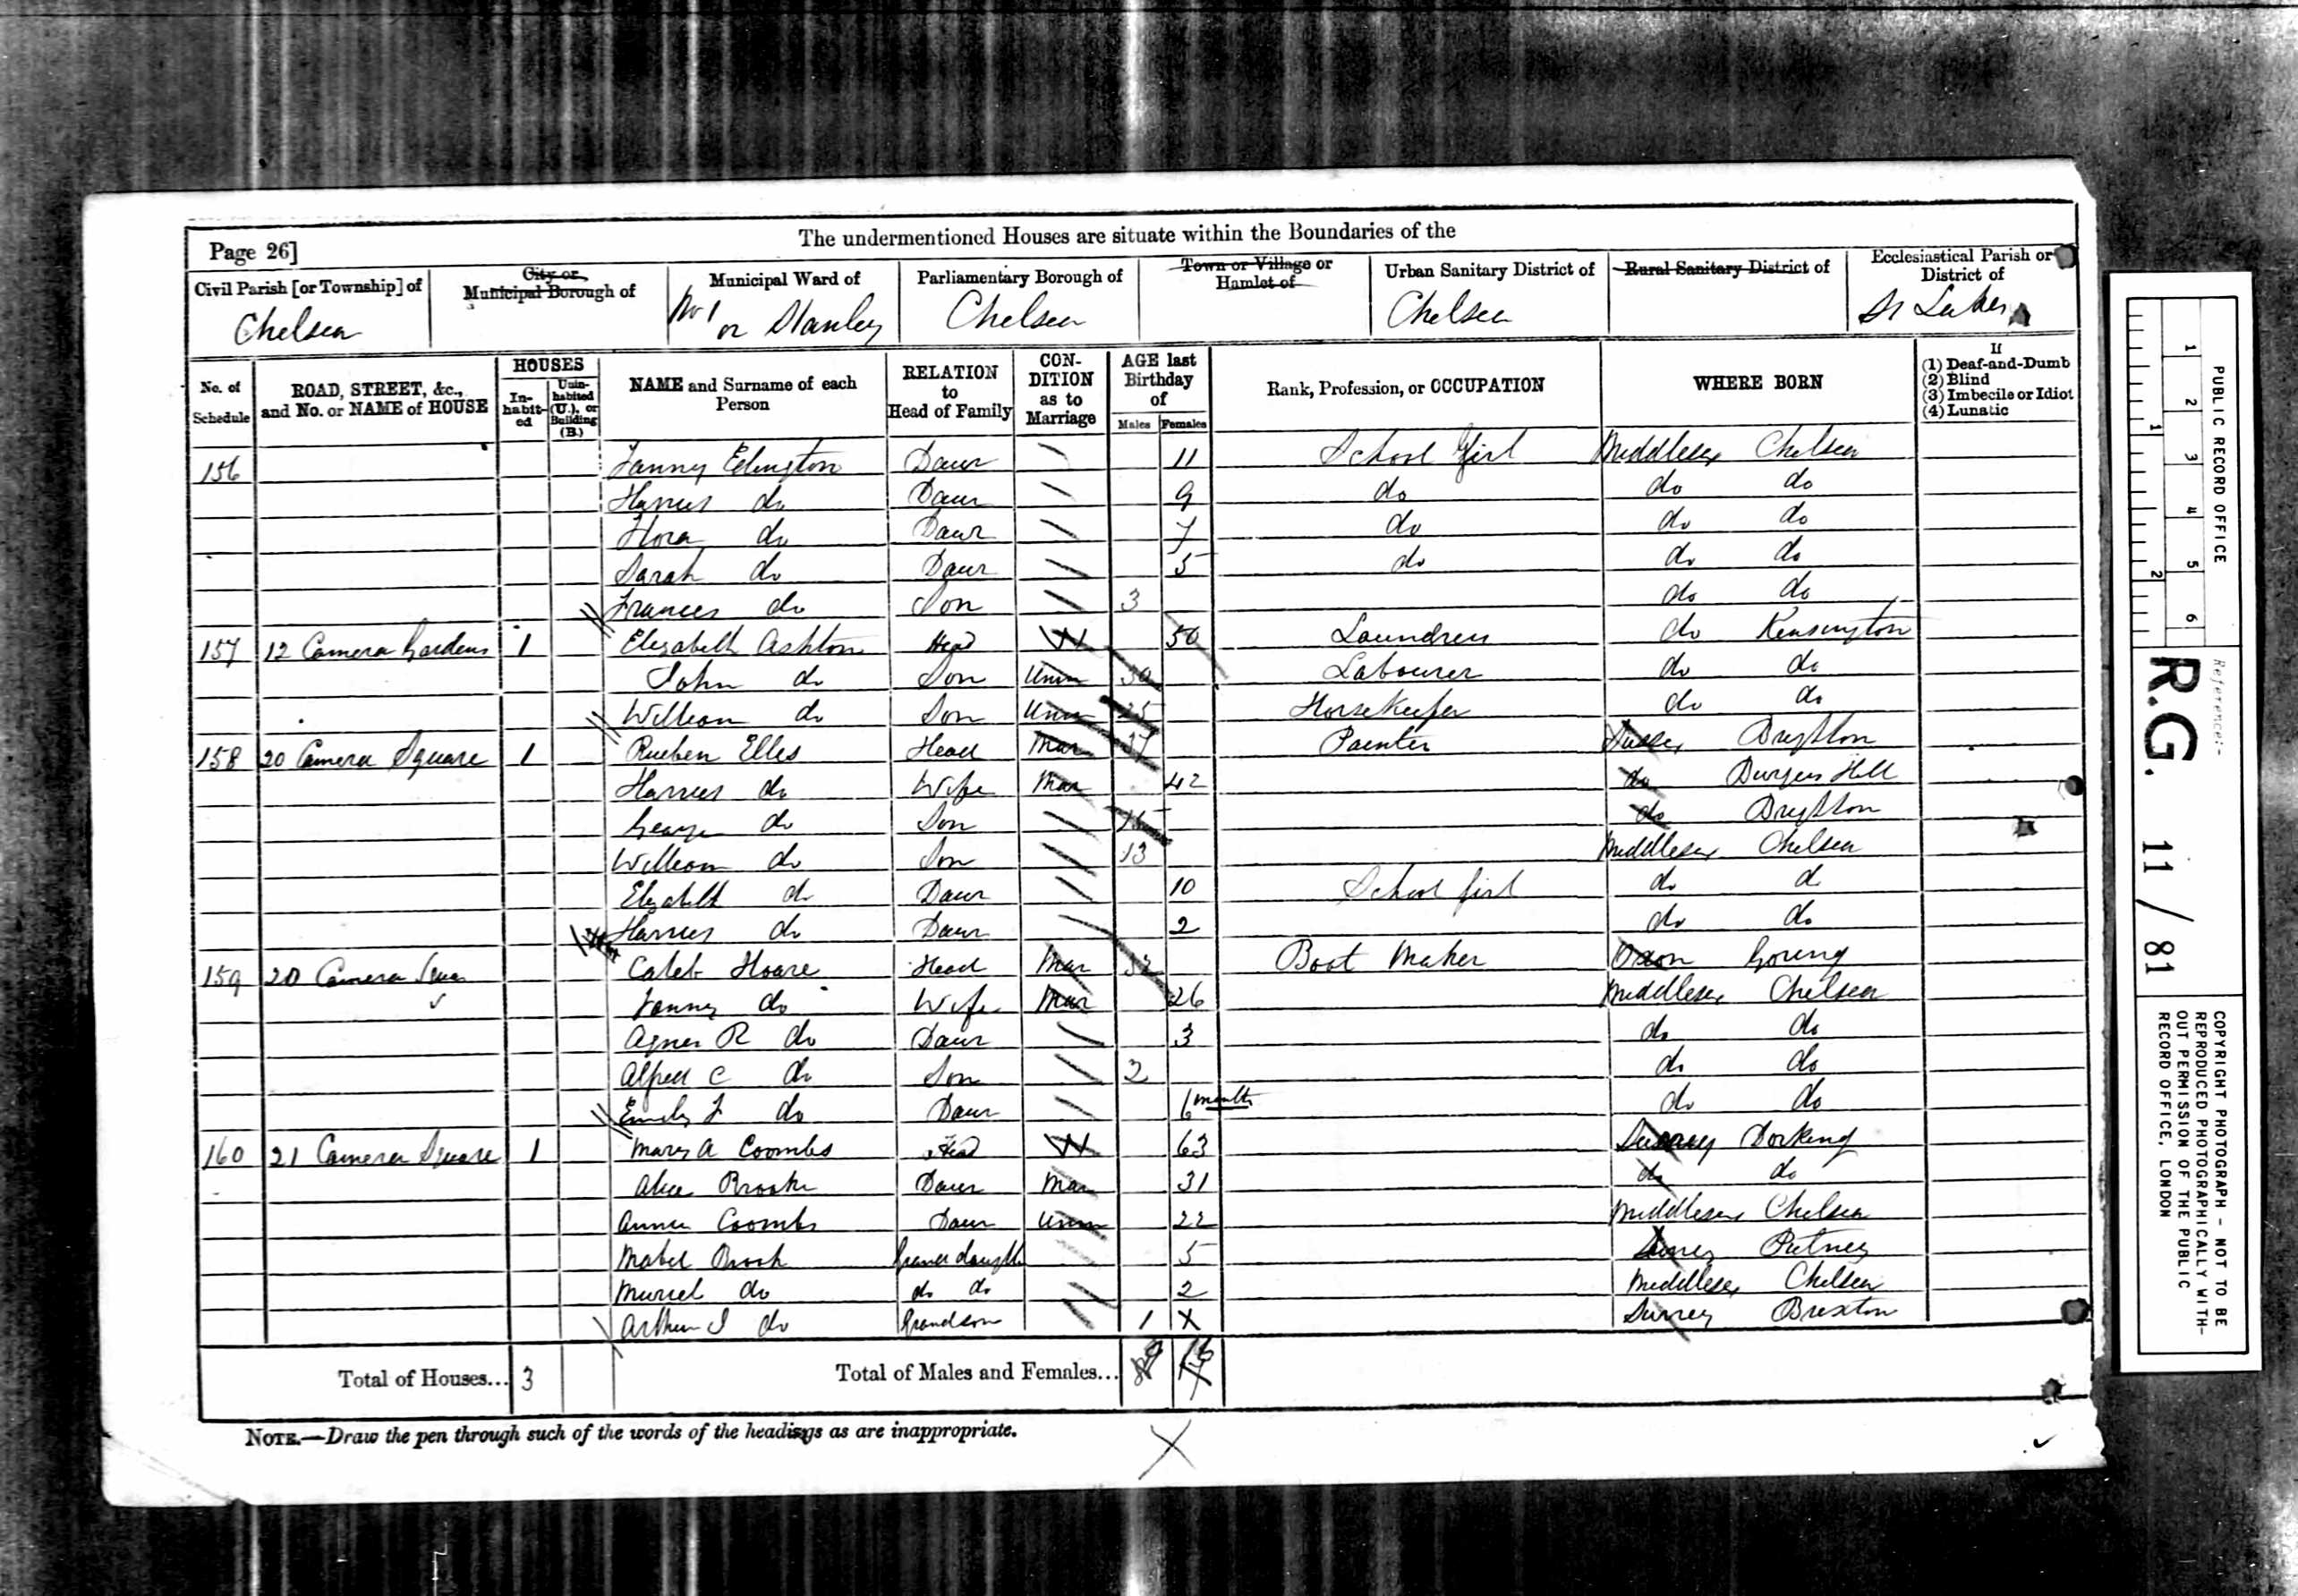 The undermentioned Houses are situate within the Boundaries of the
Page 26]
Civil Parish [or Township] of Chelsea
City or Municipal Borough of
Municipal Ward of No 1 or Stanley
Parliamentary Borough of Chelsea
Town or Village or Hamlet of
Urban Sanitary District of Chelsea
Rural Sanitary District of
Ecclesiastical Parish or District of St Lukes
No. of Schedule
ROAD, STREET, &c., and No. or NAME of HOUSE
HOUSES
In-habit-ed
Unin-habited (U.), or Building (B.)
NAME and Surname of each Person
RELATION to Head of Family
CON-DITION as to Marriage
AGE last Birthday of
Males
Females
Rank, Profession, or OCCUPATION
WHERE BORN
If
(1) Deaf-and-Dumb
(2) Blind
(3) Imbecile or Idiot
(4) Lunatic
156 Fanny Edington Daur 11 School Girl Middlesex Chelsea
Harriet do Daur 9 do do do
Flora do Daur 7 do do do
Sarah do Daur 5 do do do
Frances do Son 3 do do
157 12 Camera Gardens 1 Elizabeth Ashton Head W 50 Laundress do Kensington
John do Son Unm 30 Labourer do do
William do Son Unm 25 Horsekeeper do do
158 20 Camera Square 1 Rueben Elles Head Mar 37 Painter Sussex Brighton
Harriet do Wife Mar 42 do Burgess Hill
George do Son 15 do Brighton
William do Son 13 Middlesex Chelsea
Elizabeth do Daur 10 School Girl do do
Harriet do Daur 2 do do
159 20 Camera Square Caleb Hoare Head Mar 32 Boot Maker Oxon Goring
Fanny do Wife Mar 26 Middlesex Chelsea
Agnes R do Daur 3 do do
Alfred C do Son 2 do do
Emily F do Daur 6 months do do
160 21 Camera Square 1 Mary A Coombs Head W 63 Surrey Dorking
Alice Brooke Daur Mar 31 do do
Annie Coombs Daur Unm 22 Middlesex Chelsea
Mabel Brook Grand daughter 5 Surrey Putney
Muriel do do do 2 Middlesex Chelsea
Arthur J do Grandson 1 X Surrey Brixton
Total of Houses... 3
Total of Males and Females... 9 16
NOTE.—Draw the pen through such of the words of the headings as are inappropriate.
1 2 3 4 5 6
1 2
PUBLIC RECORD OFFICE
Reference:-
R.G. 11 / 81
COPYRIGHT PHOTOGRAPH - NOT TO BE
REPRODUCED PHOTOGRAPHICALLY WITH-
OUT PERMISSION OF THE PUBLIC
RECORD OFFICE, LONDON